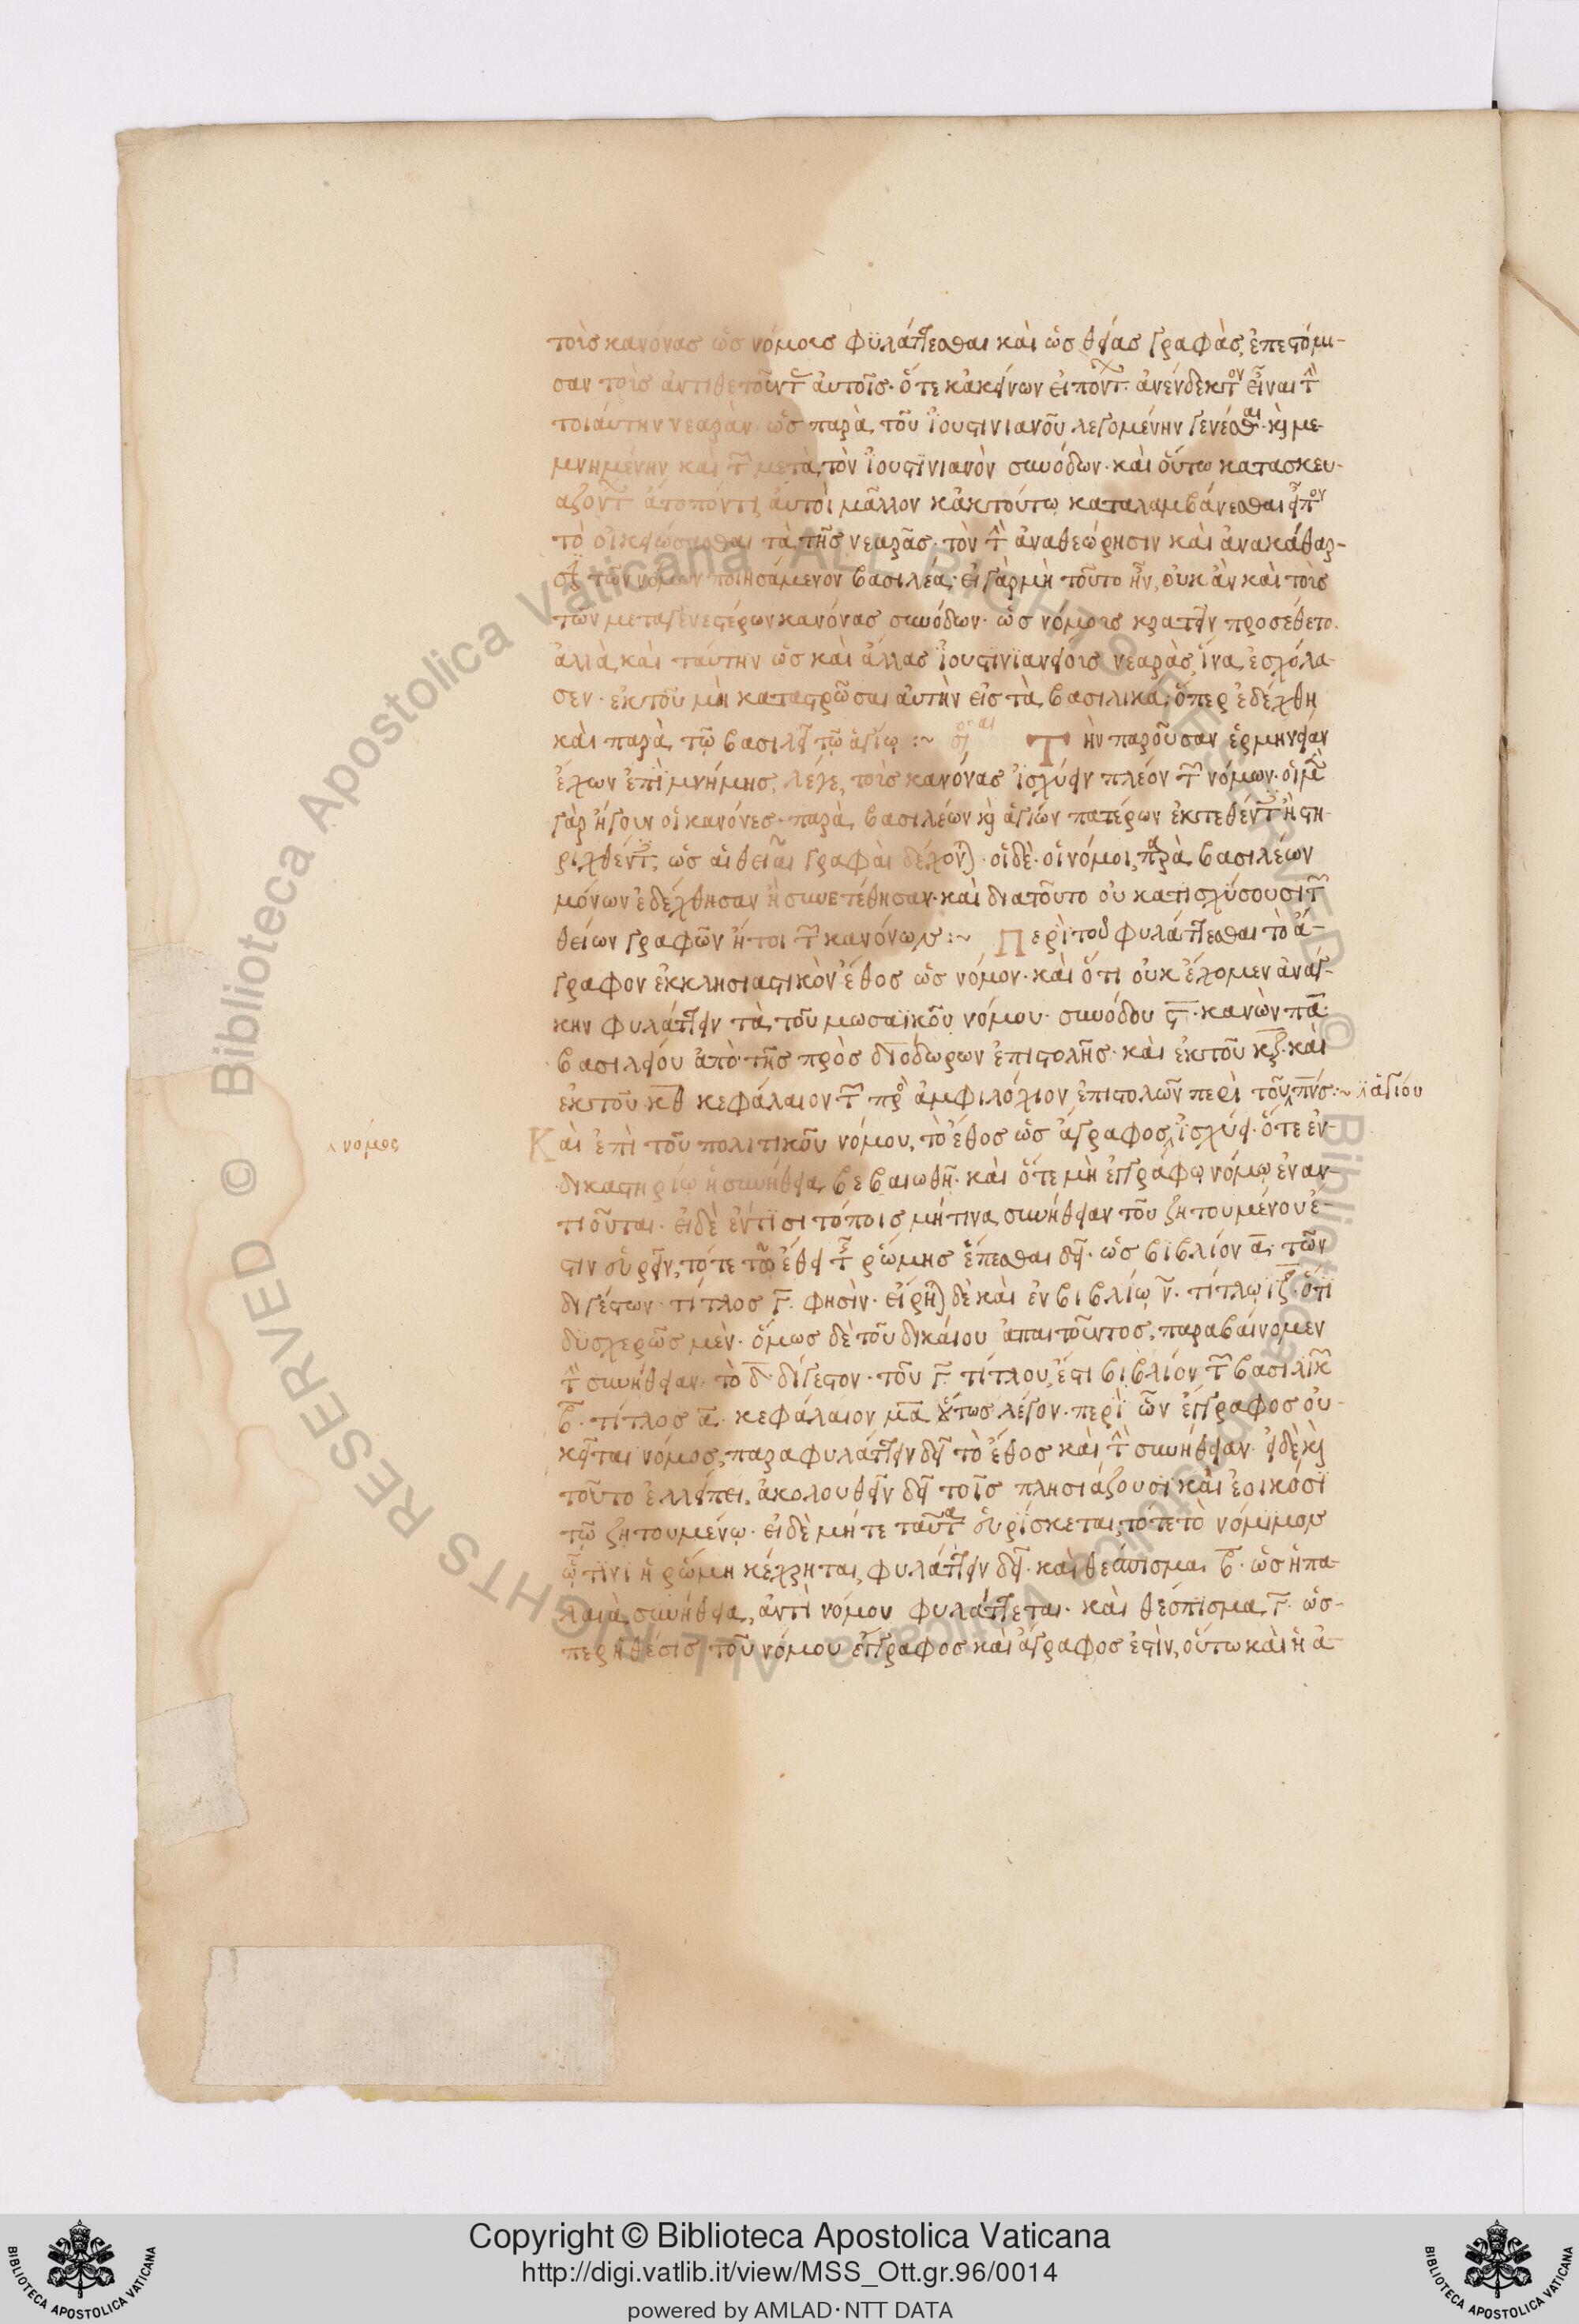 τοὺς κανόνας ὡς νόμους φυλάττεσθαι καὶ ὡς θείας γραφὰς, ἐπεστόμι-
σαν τοὺς ἀντιθετοῦντ αὐτοῖς· ὅτε κἀκείνων εἰπόντ ἀνένδεκτον εἶναι τὴν
τοιαύτην νεαρὰν ὡς παρὰ τοῦ Ἰουστινιανοῦ λεγομένην γενέσθαι· καὶ με-
μνημένην καὶ τῶν μετὰ τὸν Ἰουστινιανὸν συνόδων· καὶ οὕτω κατασκευ-
αζοντ αὐτοὶ μᾶλλον κἀκ τούτω καταλαμβάνεσθαι εἶπον
τὸ τὰ τῆς νεαρᾶς· τὸν τὴν ἀναθεώρησιν καὶ ἀνακάθαρ-
σιν τῶν νόμων ποιησάμενον βασιλέα· εἰ γὰρ μὴ τοῦτο ἦν, οὐκ ἂν καὶ τοὺς
τῶν μεταγενεστέρων κανόνας συνόδων· ὡς νόμους κρατεῖν προσέθετο.
ἀλλὰ καὶ ταύτην ὡς καὶ ἄλλας Ἰουστινιανείους νεαρὰς, ἵνα ἐσχόλα-
σεν· ἐκ τοῦ μὴ καταστρῶσαι αὐτὴν εἰς τὰ βασιλικά· ὅπερ ἐδέχθη
καὶ παρὰ τῷ βασιλεῖ τῷ ἁγίῳ :~ Τὴν παροῦσαν ἑρμηνείαν
ἔχων ἐπὶ μνήμης, λέγε, τοὺς κανόνας ἰσχύειν πλέον τῶν νόμων· οἱ μὲν
γὰρ ἤγουν οἱ κανόνες· παρὰ βασιλέων καὶ ἁγίων πατέρων ἐκτεθέντ ἢ στη-
ριχθέντ, ὡς αἱ θεῖαι γραφαὶ δέχονται· οἱ δὲ· οἱ νόμοι, παρὰ βασιλέων
μόνων ἐδέχθησαν ἢ συνετέθησαν· καὶ διατοῦτο οὐ κατισχύσουσι τῶν
θείων γραφῶν ἤτοι τῶν κανόνων :~ Περὶ τοῦ φυλάττεσθαι τὸ ἄ-
γραφον ἐκκλησιαστικὸν ἔθος ὡς νόμον· καὶ ὅτι οὐκ ἔχομεν ἀνάγ-
κην φυλάττειν τὰ τοῦ μωσαϊκοῦ νόμου· συνόδου ϛ· κανὼν πα·
βασιλείου ἀπὸ τῆς πρὸς διοδώρων ἐπιστολῆς· καὶ ἐκ τοῦ κζ· καὶ
ἐκ τοῦ κθ κεφάλαιον τῶν πρὸς ἀμφιλόχιον ἐπιστολῶν περὶ τοῦ πνς :~ ἁγίου
Καὶ ἐπὶ τοῦ πολιτικοῦ νόμου, τὸ ἔθος ὡς ἄγραφος ἰσχύει· ὅτε ἐν
νόμος
δικαστηρίω ἡ συνήθεια βεβαιωθῆ· καὶ ὅτε μὴ ἐγγράφῳ νόμῳ ἐναν-
τιοῦται· εἰ δὲ ἐν τισι τόποις μήτινα συνήθειαν τοῦ ζητουμένου ἔ-
στιν εὑρεῖν, τότε τῶ ἔθει τῆς ῥώμης ἕπεσθαι δεῖ· ὡς βιβλίον α· τῶν
διγέστων· τίτλος γ· φησὶν· εἴρηται δὲ καὶ ἐν βιβλίῳ ν· τίτλῳ ιζ· ὅτι
δυσχερῶς μὲν· ὅμως δὲ τοῦ δικαίου ἀπαιτοῦντος, παραβαίνομεν
τὴν συνήθειαν· τὸ δ· δίγεστον· τοῦ γ τίτλου, ἔστι βιβλίον τῶν βασιλικῶν
β· τίτλος α· κεφάλαιον μα οὕτως λέγον· περὶ ὧν ἔγγραφος οὐ
κεῖται νόμος, παραφυλάττειν δεῖ τὸ ἔθος καὶ τὴν συνήθειαν· εἰ δὲ καὶ
τοῦτο ἐλλείπει, ἀκολουθεῖν δεῖ τοῖς πλησιάζουσι καὶ ἐοικόσι
τῷ ζητουμένῳ· εἰ δὲ μήτε ταῦτα εὑρίσκεται, τότε τὸ νόμιμον
ᾧτινι ἡ ῥώμη κέχρηται, φυλάττειν δεῖ· καὶ θέσπισμα β· ὡς ἡ πα-
λαιὰ συνήθεια, ἀντὶ νόμου φυλάττεται· καὶ θέσπισμα γ· ὥσ-
περ ἡ θέσις τοῦ νόμου ἔγγραφος καὶ ἄγραφος ἐστὶν, οὕτω καὶ ἡ ἀ-
Copyright © Biblioteca Apostolica Vaticana
http://digi.vatlib.it/view/MSS_Ott.gr.96/0014
powered by AMLAD·NTT DATA
BIBLIOTECA APOSTOLICA VATICANA
BIBLIOTECA APOSTOLICA VATICANA
© Biblioteca Apostolica Vaticana ALL RIGHTS RESERVED © Biblioteca Apostolica Vaticana ALL RIGHTS RESERVED